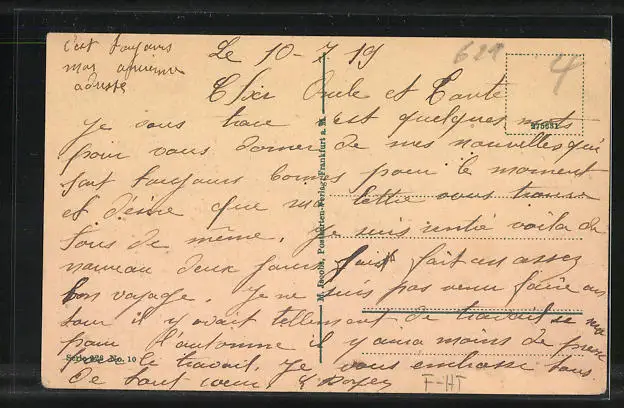 c'est toujours
mon ancienne
adresse
Le 10-7 19
629
4
Cher Oncle et Tante
275631
Je vous trace c'est quelques mots
pour vous donner de mes nouvelles qui
sont toujours bonnes pour le moment
et désire que ma lettre vous trouve
tous de même. Je suis rentré voilà de
nouveau deux jours fait assez
bon voyage. Je ne suis pas venu faire un
tour il y avait tellement de travail
pour l'automne il y aura moins de
le travail. Je vous embrasse tous
de tout coeur
M. Jacobs, Postkarten-Verlag, Frankfurt a. M.
Serie 278 No. 10
F-HT